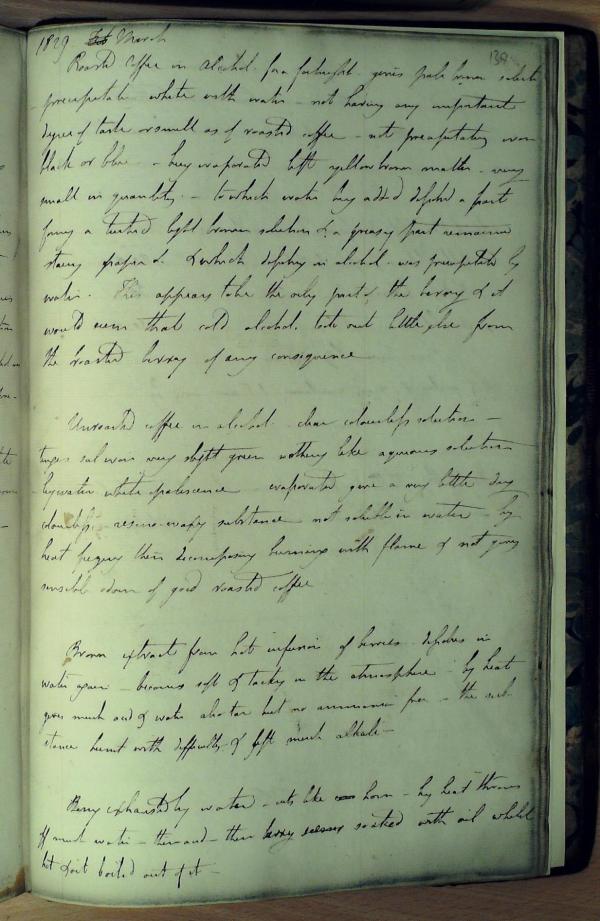 1829 March 139
Roasted coffee in alcohol for a fortnight gives pale brown solution
precipitable white with water - not having any important
degree of taste or smell as of roasted coffee - not precipitating iron
black or blue - being evaporated left yellow brown matter - very
small in quantity - to which water being added dissolved a part
forming a turbid light brown solution & a greasy part remained
staining paper &c. & which dissolving in alcohol was precipitated by
water. This appears to be the oily part of the berry & it
would seem that cold alcohol took out little else from
the roasted berry of any consequence
Unroasted coffee in alcohol clear colourless solution -
tinges sol iron very slight green nothing like aqueous solution
by water white opalescence evaporated gave a very little dry
colourless resino-waxy substance not soluble in water - by
heat fusing then decomposing burning with flame & not giving
sensible odour of good roasted coffee
Brown extract from hot infusion of berries dissolves in
water again - becomes soft & tacky in the atmosphere - by heat
gives much acid & water also tar but no ammonia free - the sub-
stance burnt with difficulty & left much alkali -
Berry exhausted by water - cuts like horn - by heat throws
off much water - then acid - then berry soaked with oil whilst
hot & oil boiled out of it -